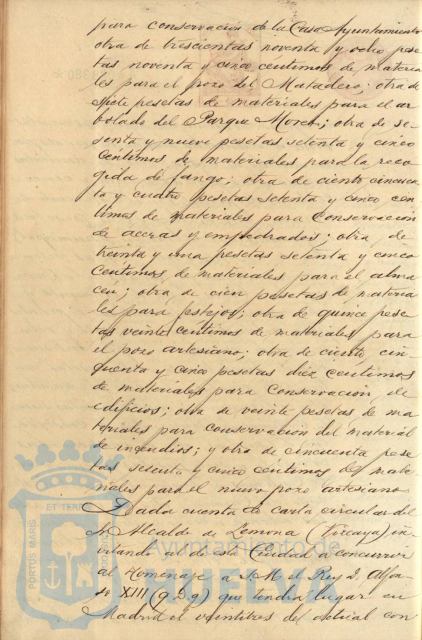 para conservación de la Casa Ayuntamiento
otra de trescientas noventa y ocho pese
tas noventa y cinco centimos de materia
les para el pozo del Matadero; otra de
siete pesetas de materiales para el ar
bolado del Parque Moret; otra de se
senta y nueve pesetas setenta y cinco
centimos de materiales para la reco
gida de fango; otra de ciento cincuen
ta y cuatro pesetas setenta y cinco cen
timos de materiales para conservación
de aceras y empedrados; otra de
treinta y una pesetas setenta y cinco
centimos de materiales para el alma
cen; otra de cien pesetas de materia
les para festejos; otra de quince pese
tas veinte centimos de materiales para
el pozo artesiano; otra de ciento cin
cuenta y cinco pesetas diez centimos
de materiales para conservación de
edificios; otra de veinte pesetas de ma
teriales para conservación del material
de incendios; y otra de cincuenta pese
tas sesenta y cinco centimos de mate
riales para el nuevo pozo artesiano.
Dada cuenta de carta circular del
Sr Alcalde de Lemona (Vizcaya) in
vitando a esta Ciudad a concurrir
al Homenaje a S. M. el Rey D. Alfon
so XIII (q. D. g) que tendrá lugar en
Madrid el veintitres del actual con
PORTUS MARIS ET TERRAE
Ayuntamiento de
HUELVA